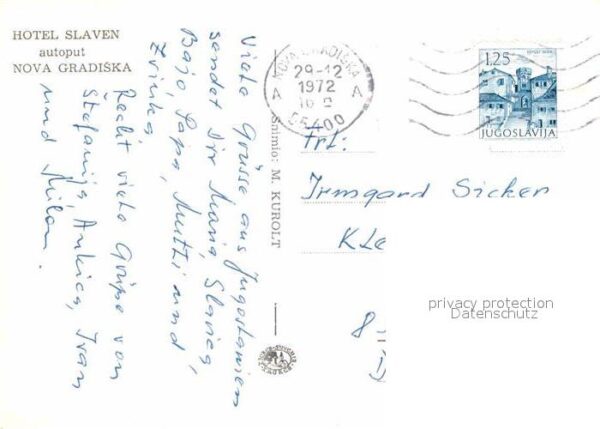 HOTEL SLAVEN
autoput
NOVA GRADIŠKA
Viele Grüsse aus Jugoslawien
sendet Dir Maria, Slavica,
Bajo, Papa, Mutti und
Zvinka,
Recht viele Grüße von
Štefanija, Ankica, Ivan
und Milan.
Snimio: M. KUROLT
NOVA GRADIŠKA
29-12
1972
A A
55400
1.25
JUGOSLAVIJA
Frl:
Irmgard Sicker
Kle
8
privacy protection
Datenschutz